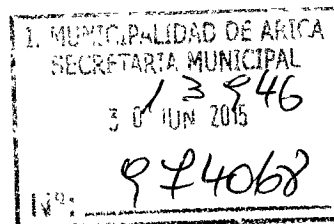 I. MUNICIPALIDAD DE ARICA
SECRETARIA MUNICIPAL
13946
30 JUN 2015
Nº: 974068